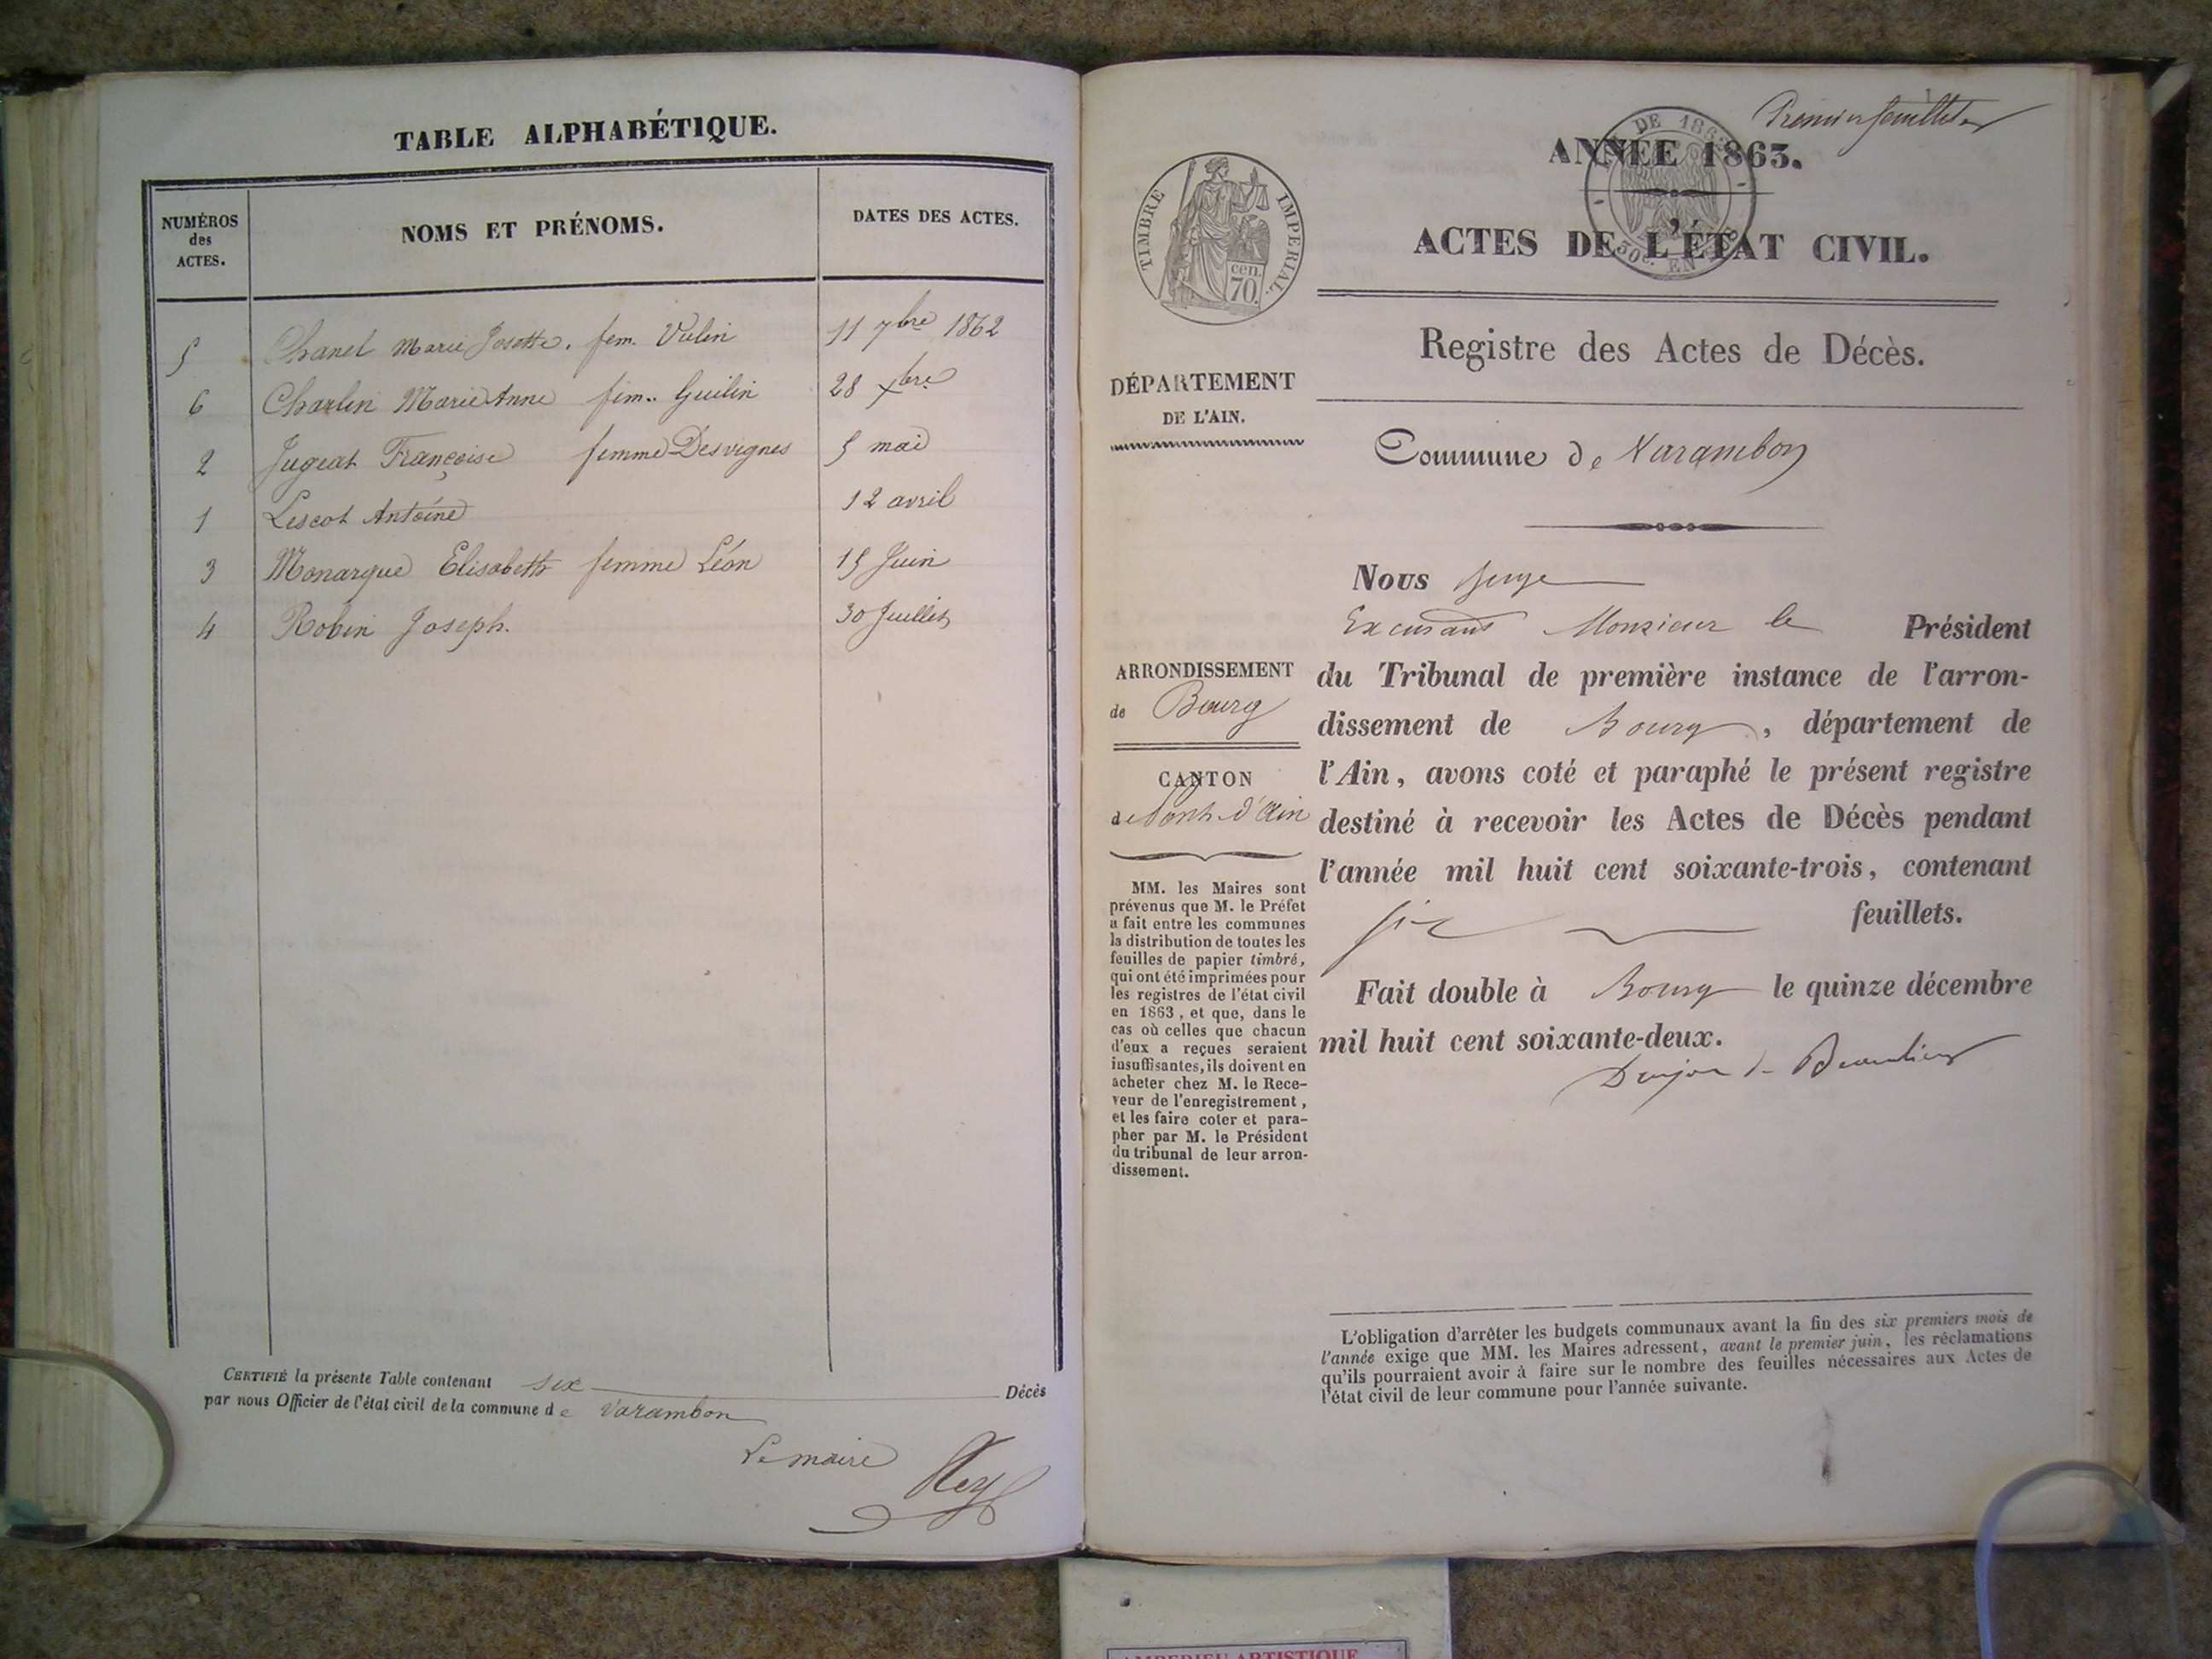 TABLE ALPHABÉTIQUE.
NUMÉROS
des
ACTES.
NOMS ET PRÉNOMS.
DATES DES ACTES.
5 Chanel Marie Josette. fem. Vulin 11 7bre 1862
6 Charlin Marie Anne fem.. Guilin 28 xbre
2 Jugeat Françoise femme Desvignes 5 mai
1 Lescot Antoine 12 avril
3 Monarque Elisabeth femme Léon 15 Juin
4 Robin Joseph. 30 Juillet
CERTIFIÉ la présente Table contenant six Décès
par nous Officier de l'état civil de la commune de Varambon
Le maire
Premier feuillet
ANNÉE 1863.
ACTES DE L'ÉTAT CIVIL.
TIMBRE IMPERIAL.
cen.
70.
DE 1862
50c. EN
Registre des Actes de Décès.
DÉPARTEMENT
DE L'AIN.
Commune de Varambon
Nous juge
Monsieur le Président
ARRONDISSEMENT
de Bourg
du Tribunal de première instance de l'arron-
dissement de Bourg, département de
l'Ain, avons coté et paraphé le présent registre
destiné à recevoir les Actes de Décès pendant
l'année mil huit cent soixante-trois, contenant
six feuillets.
CANTON
de Pont-d'Ain
MM. les Maires sont
prévenus que M. le Préfet
a fait entre les communes
la distribution de toutes les
feuilles de papier timbré,
qui ont été imprimées pour
les registres de l'état civil
en 1863, et que, dans le
cas où celles que chacun
d'eux a reçues seraient
insuffisantes, ils doivent en
acheter chez M. le Rece-
veur de l'enregistrement,
et les faire coter et para-
pher par M. le Président
du tribunal de leur arron-
dissement.
Fait double à Bourg le quinze décembre
mil huit cent soixante-deux.
L'obligation d'arrêter les budgets communaux avant la fin des six premiers mois de
l'année exige que MM. les Maires adressent, avant le premier juin, les réclamations
qu'ils pourraient avoir à faire sur le nombre des feuilles nécessaires aux Actes de
l'état civil de leur commune pour l'année suivante.
AMBERIEU ARTISTIQUE